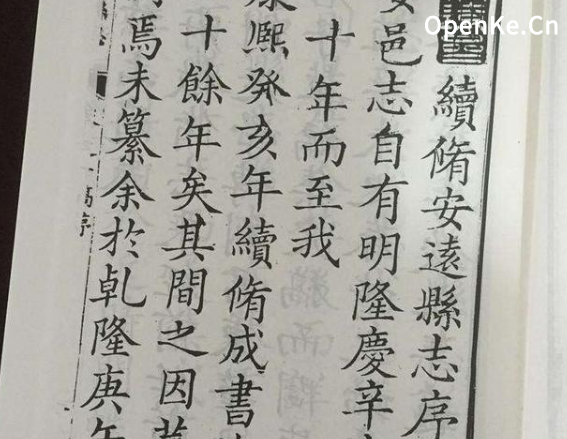 OpenKe.Cn
續脩安遠縣志序
安邑志自有明隆慶辛
十年而至我
康熙癸亥年續脩成書
十餘年矣其間之因
焉未纂余於乹隆庚午
序